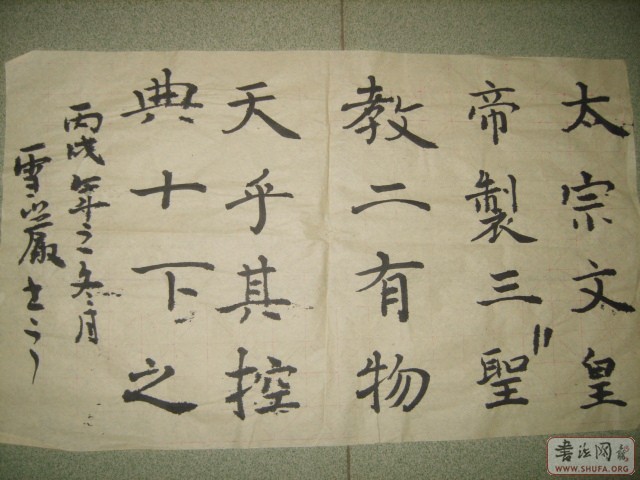 太宗文皇
帝製三聖
教二有物
天乎其控
典十下之
丙戌年之冬月
雪岩
書法网
WWW.SHUFA.ORG